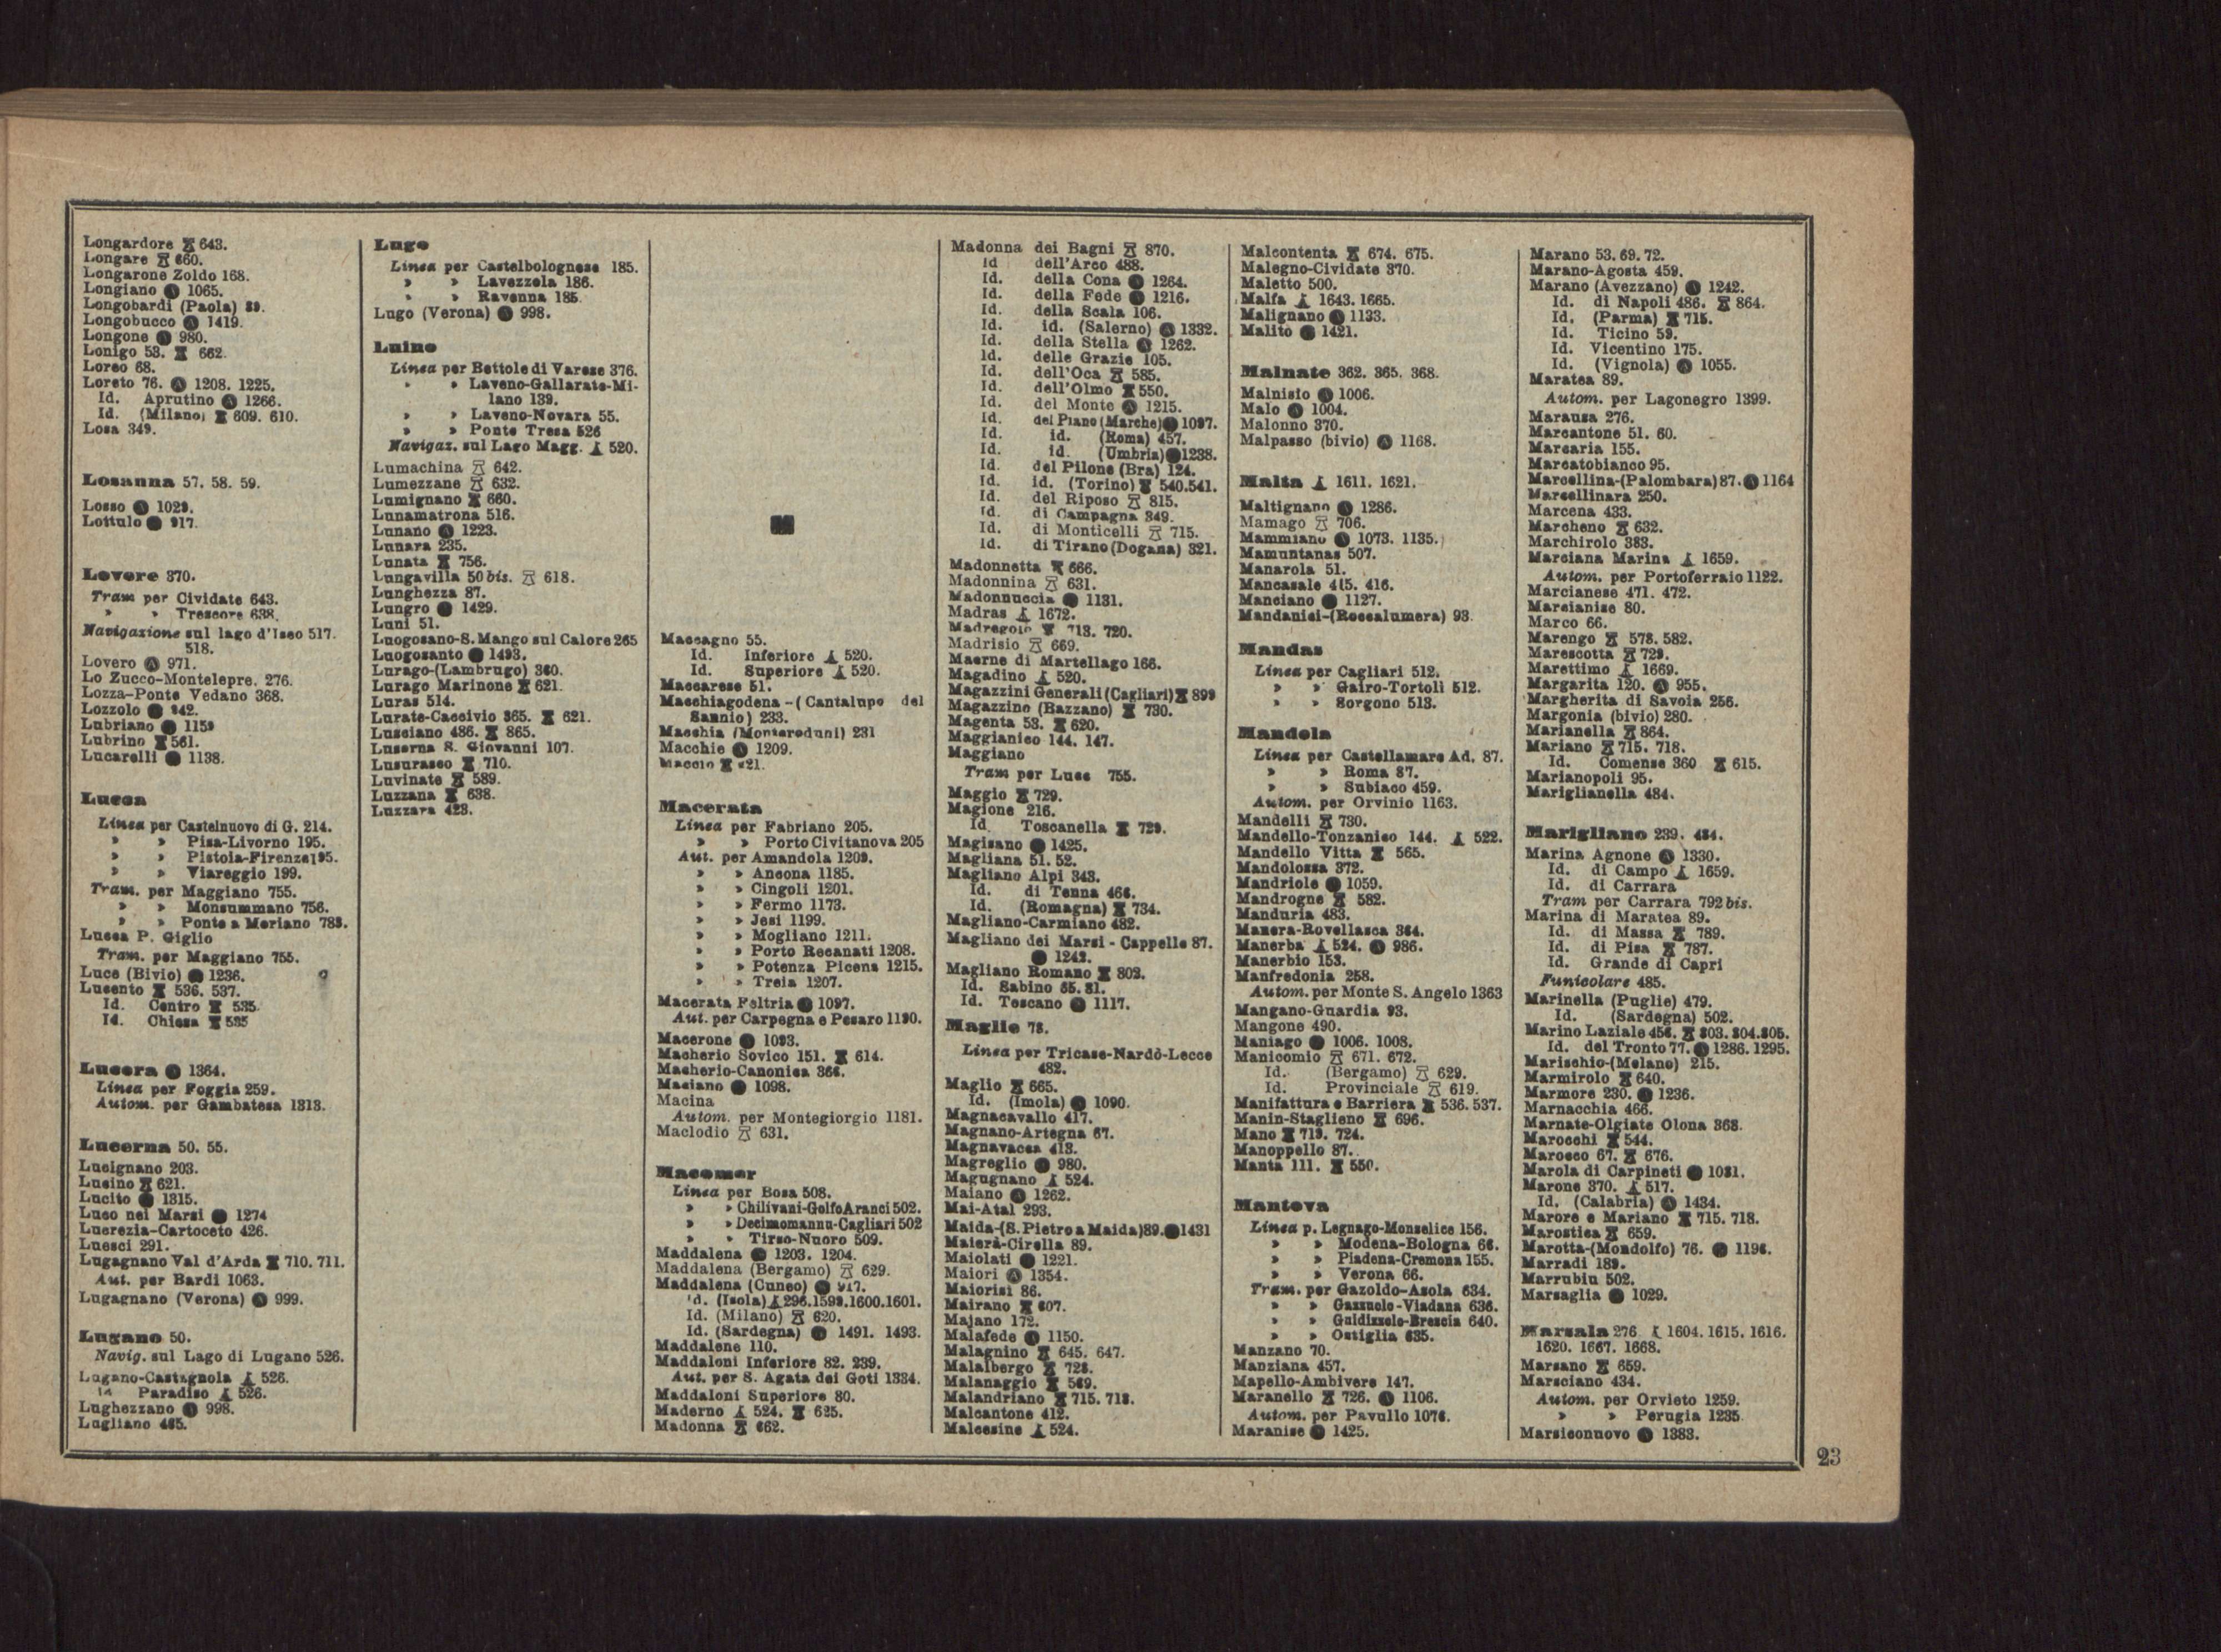 Longardore 643.
Longare 660.
Longarone Zoldo 168.
Longiano 1065.
Longobardi (Paola) 89.
Longobucco 1419.
Longone 980.
Lonigo 53. 662.
Loreo 68.
Loreto 76. 1208. 1225.
Id. Aprutino 1266.
Id. (Milano) 609. 610.
Losa 349.
Losanna 57. 58. 59.
Losso 1029.
Lottulo 917.
Lovere 370.
Tram per Cividate 643.
» » Trescore 638.
Navigazione sul lago d'Iseo 517.
518.
Lovero 971.
Lo Zucco-Montelepre. 276.
Lozza-Ponte Vedano 368.
Lozzolo 942.
Lubriano 1159
Lubrino 561.
Lucarelli 1138.
Lucca
Linea per Castelnuovo di G. 214.
» » Pisa-Livorno 195.
» » Pistoia-Firenze 195.
» » Viareggio 199.
Tram. per Maggiano 755.
» » Monsummano 756.
» » Ponte a Moriano 783.
Lucca P. Giglio
Tram. per Maggiano 755.
Luce (Bivio) 1236.
Lucento 536. 537.
Id. Centro 535.
Id. Chiesa 535
Lucera 1364.
Linea per Foggia 259.
Autom. per Gambatesa 1313.
Lucerna 50. 55.
Lucignano 203.
Lucino 621.
Lucito 1315.
Luco nei Marsi 1274
Lucrezia-Cartoceto 426.
Luesci 291.
Lugagnano Val d'Arda 710. 711.
Aut. per Bardi 1063.
Lugagnano (Verona) 999.
Lugano 50.
Navig. sul Lago di Lugano 526.
Lugano-Castagnola 526.
Id. Paradiso 526.
Lughezzano 998.
Lugliano 465.
Lugo
Linea per Castelbolognese 185.
» » Lavezzola 186.
» » Ravenna 185.
Lugo (Verona) 998.
Luino
Linea per Bettole di Varese 376.
» » Laveno-Gallarate-Mi-
lano 139.
» » Laveno-Novara 55.
» » Ponte Tresa 526
Navigaz. sul Lago Magg. 520.
Lumachina 642.
Lumezzane 632.
Lumignano 660.
Lunamatrona 516.
Lunano 1223.
Lunara 235.
Lunata 756.
Lungavilla 50 bis. 618.
Lunghezza 87.
Lungro 1429.
Luni 51.
Luogosano-S. Mango sul Calore 265
Luogosanto 1493.
Lurago-(Lambrugo) 360.
Lurago Marinone 621.
Luras 514.
Lurate-Caccivio 365. 621.
Lusciano 486. 865.
Luserna S. Giovanni 107.
Lusurasco 710.
Luvinate 589.
Luzzana 638.
Luzzara 423.
M
Maccagno 55.
Id. Inferiore 520.
Id. Superiore 520.
Maccarese 51.
Macchiagodena - (Cantalupo del
Sannio) 233.
Macchia (Monteroduni) 231
Macchie 1209.
Maccio 621.
Macerata
Linea per Fabriano 205.
» » Porto Civitanova 205
Aut. per Amandola 1209.
» » Ancona 1185.
» » Cingoli 1201.
» » Fermo 1173.
» » Jesi 1199.
» » Mogliano 1211.
» » Porto Recanati 1208.
» » Potenza Picena 1215.
» » Treia 1207.
Macerata Feltria 1097.
Aut. per Carpegna e Pesaro 1190.
Macerone 1093.
Macherio Sovico 151. 614.
Macherio-Canonica 366.
Maciano 1098.
Macina
Autom. per Montegiorgio 1181.
Maclodio 631.
Macomer
Linea per Bosa 508.
» » Chilivani-Golfo Aranci 502.
» » Decimomannu-Cagliari 502
» » Tirso-Nuoro 509.
Maddalena 1203. 1204.
Maddalena (Bergamo) 629.
Maddalena (Cuneo) 917.
Id. (Isola) 296. 1599. 1600. 1601.
Id. (Milano) 620.
Id. (Sardegna) 1491. 1493.
Maddalene 110.
Maddaloni Inferiore 82. 239.
Aut. per S. Agata dei Goti 1334.
Maddaloni Superiore 80.
Maderno 524. 625.
Madonna 662.
Madonna dei Bagni 870.
Id dell'Arco 488.
Id. della Cona 1264.
Id. della Fede 1216.
Id. della Scala 106.
Id. id. (Salerno) 1332.
Id. della Stella 1262.
Id. delle Grazie 105.
Id. dell'Oca 585.
Id. dell'Olmo 550.
Id. del Monte 1215.
Id. del Piano (Marche) 1097.
Id. id. (Roma) 457.
Id. id. (Umbria) 1238.
Id. del Pilone (Bra) 124.
Id. id. (Torino) 540. 541.
Id. del Riposo 815.
Id. di Campagna 349.
Id. di Monticelli 715.
Id. di Tirano (Dogana) 321.
Madonnetta 666.
Madonnina 631.
Madonnuccia 1131.
Madras 1672.
Madregolo 713. 720.
Madrisio 669.
Maerne di Martellago 166.
Magadino 520.
Magazzini Generali (Cagliari) 899
Magazzino (Bazzano) 730.
Magenta 53. 620.
Maggianico 144. 147.
Maggiano
Tram per Lucc 755.
Maggio 729.
Magione 216.
Id. Toscanella 729.
Magisano 1425.
Magliana 51. 52.
Magliano Alpi 343.
Id. di Tenna 466.
Id. (Romagna) 734.
Magliano-Carmiano 482.
Magliano dei Marsi - Cappelle 87.
1242.
Magliano Romano 802.
Id. Sabino 65. 81.
Id. Toscano 1117.
Maglie 78.
Linea per Tricase-Nardò-Lecce
482.
Maglio 665.
Id. (Imola) 1090.
Magnacavallo 417.
Magnano-Artegna 67.
Magnavacca 413.
Magreglio 980.
Magugnano 524.
Maiano 1262.
Mai-Atal 293.
Maida-(S. Pietro a Maida) 89. 1431
Maierà-Cirella 89.
Maiolati 1221.
Maiori 1354.
Maiorisi 86.
Mairano 607.
Majano 172.
Malafede 1150.
Malagnino 645. 647.
Malalbergo 728.
Malanaggio 569.
Malandriano 715. 718.
Malcantone 412.
Malcesine 524.
Malcontenta 674. 675.
Malegno-Cividate 370.
Maletto 500.
Malfa 1643. 1665.
Malignano 1133.
Malito 1421.
Malnate 362. 365. 368.
Malnisio 1006.
Malo 1004.
Malonno 370.
Malpasso (bivio) 1168.
Malta 1611. 1621.
Maltignano 1286.
Mamago 706.
Mammiano 1073. 1135.
Mamuntanas 507.
Manarola 51.
Mancasale 415. 416.
Manciano 1127.
Mandanici-(Roccalumera) 93.
Mandas
Linea per Cagliari 512.
» » Gairo-Tortoli 512.
» » Sorgono 513.
Mandela
Linea per Castellamare Ad. 87.
» » Roma 87.
» » Subiaco 459.
Autom. per Orvinio 1163.
Mandelli 730.
Mandello-Tonzanico 144. 522.
Mandello Vitta 565.
Mandolossa 372.
Mandriole 1059.
Mandrogne 582.
Manduria 483.
Manera-Rovellasca 364.
Manerba 524. 986.
Manerbio 153.
Manfredonia 258.
Autom. per Monte S. Angelo 1363
Mangano-Guardia 93.
Mangone 490.
Maniago 1006. 1008.
Manicomio 671. 672.
Id. (Bergamo) 629.
Id. Provinciale 619.
Manifattura e Barriera 536. 537.
Manin-Staglieno 696.
Mano 719. 724.
Manoppello 87.
Manta 111. 550.
Mantova
Linea p. Legnago-Monselice 156.
» » Modena-Bologna 66.
» » Piadena-Cremona 155.
» » Verona 66.
Tram. per Gazoldo-Asola 634.
» » Gazzuolo-Viadana 636.
» » Guidizzolo-Brescia 640.
» » Ostiglia 635.
Manzano 70.
Manziana 457.
Mapello-Ambivere 147.
Maranello 726. 1106.
Autom. per Pavullo 1076.
Maranise 1425.
Marano 53. 69. 72.
Marano-Agosta 459.
Marano (Avezzano) 1242.
Id. di Napoli 486. 864.
Id. (Parma) 715.
Id. Ticino 59.
Id. Vicentino 175.
Id. (Vignola) 1055.
Maratea 89.
Autom. per Lagonegro 1399.
Marausa 276.
Marcantone 51. 60.
Marcaria 155.
Marcatobianco 95.
Marcellina-(Palombara) 87. 1164
Marcellinara 250.
Marcena 433.
Marcheno 632.
Marchirolo 383.
Marciana Marina 1659.
Autom. per Portoferraio 1122.
Marcianese 471. 472.
Marcianise 80.
Marco 66.
Marengo 578. 582.
Marescotta 729.
Marettimo 1669.
Margarita 120. 955.
Margherita di Savoia 256.
Margonia (bivio) 280.
Marianella 864.
Mariano 715. 718.
Id. Comense 360 615.
Marianopoli 95.
Mariglianella 484.
Marigliano 239. 484.
Marina Agnone 1330.
Id. di Campo 1659.
Id. di Carrara
Tram per Carrara 792 bis.
Marina di Maratea 89.
Id. di Massa 789.
Id. di Pisa 787.
Id. Grande di Capri
Funicolare 485.
Marinella (Puglie) 479.
Id. (Sardegna) 502.
Marino Laziale 456. 803. 804. 805.
Id. del Tronto 77. 1286. 1295.
Marischio-(Melano) 215.
Marmirolo 640.
Marmore 230. 1236.
Marnacchia 466.
Marnate-Olgiate Olona 368.
Marocchi 544.
Marocco 67. 676.
Marola di Carpineti 1031.
Marone 370. 517.
Id. (Calabria) 1434.
Marore e Mariano 715. 718.
Marostica 659.
Marotta-(Mondolfo) 76. 1196.
Marradi 189.
Marrubiu 502.
Marsaglia 1029.
Marsala 276. 1604. 1615. 1616.
1620. 1667. 1668.
Marsano 659.
Marsciano 434.
Autom. per Orvieto 1259.
» » Perugia 1235
Marsiconuovo 1383.
23